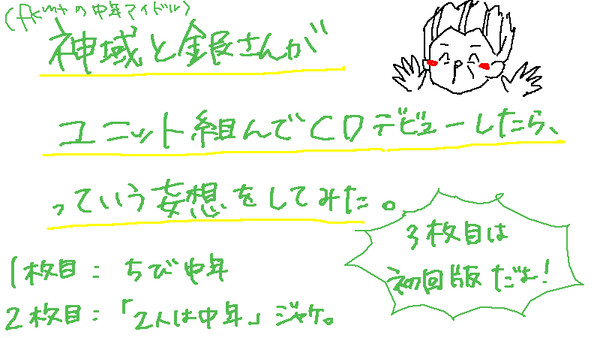 (fkmtの中年アイドル)
神域と銀さんが
ユニット組んでCDデビューしたら、
っていう妄想をしてみた。
1枚目：ちび中年
2枚目：「2人は中年」ジャケ。
3枚目は
初回版だよ!